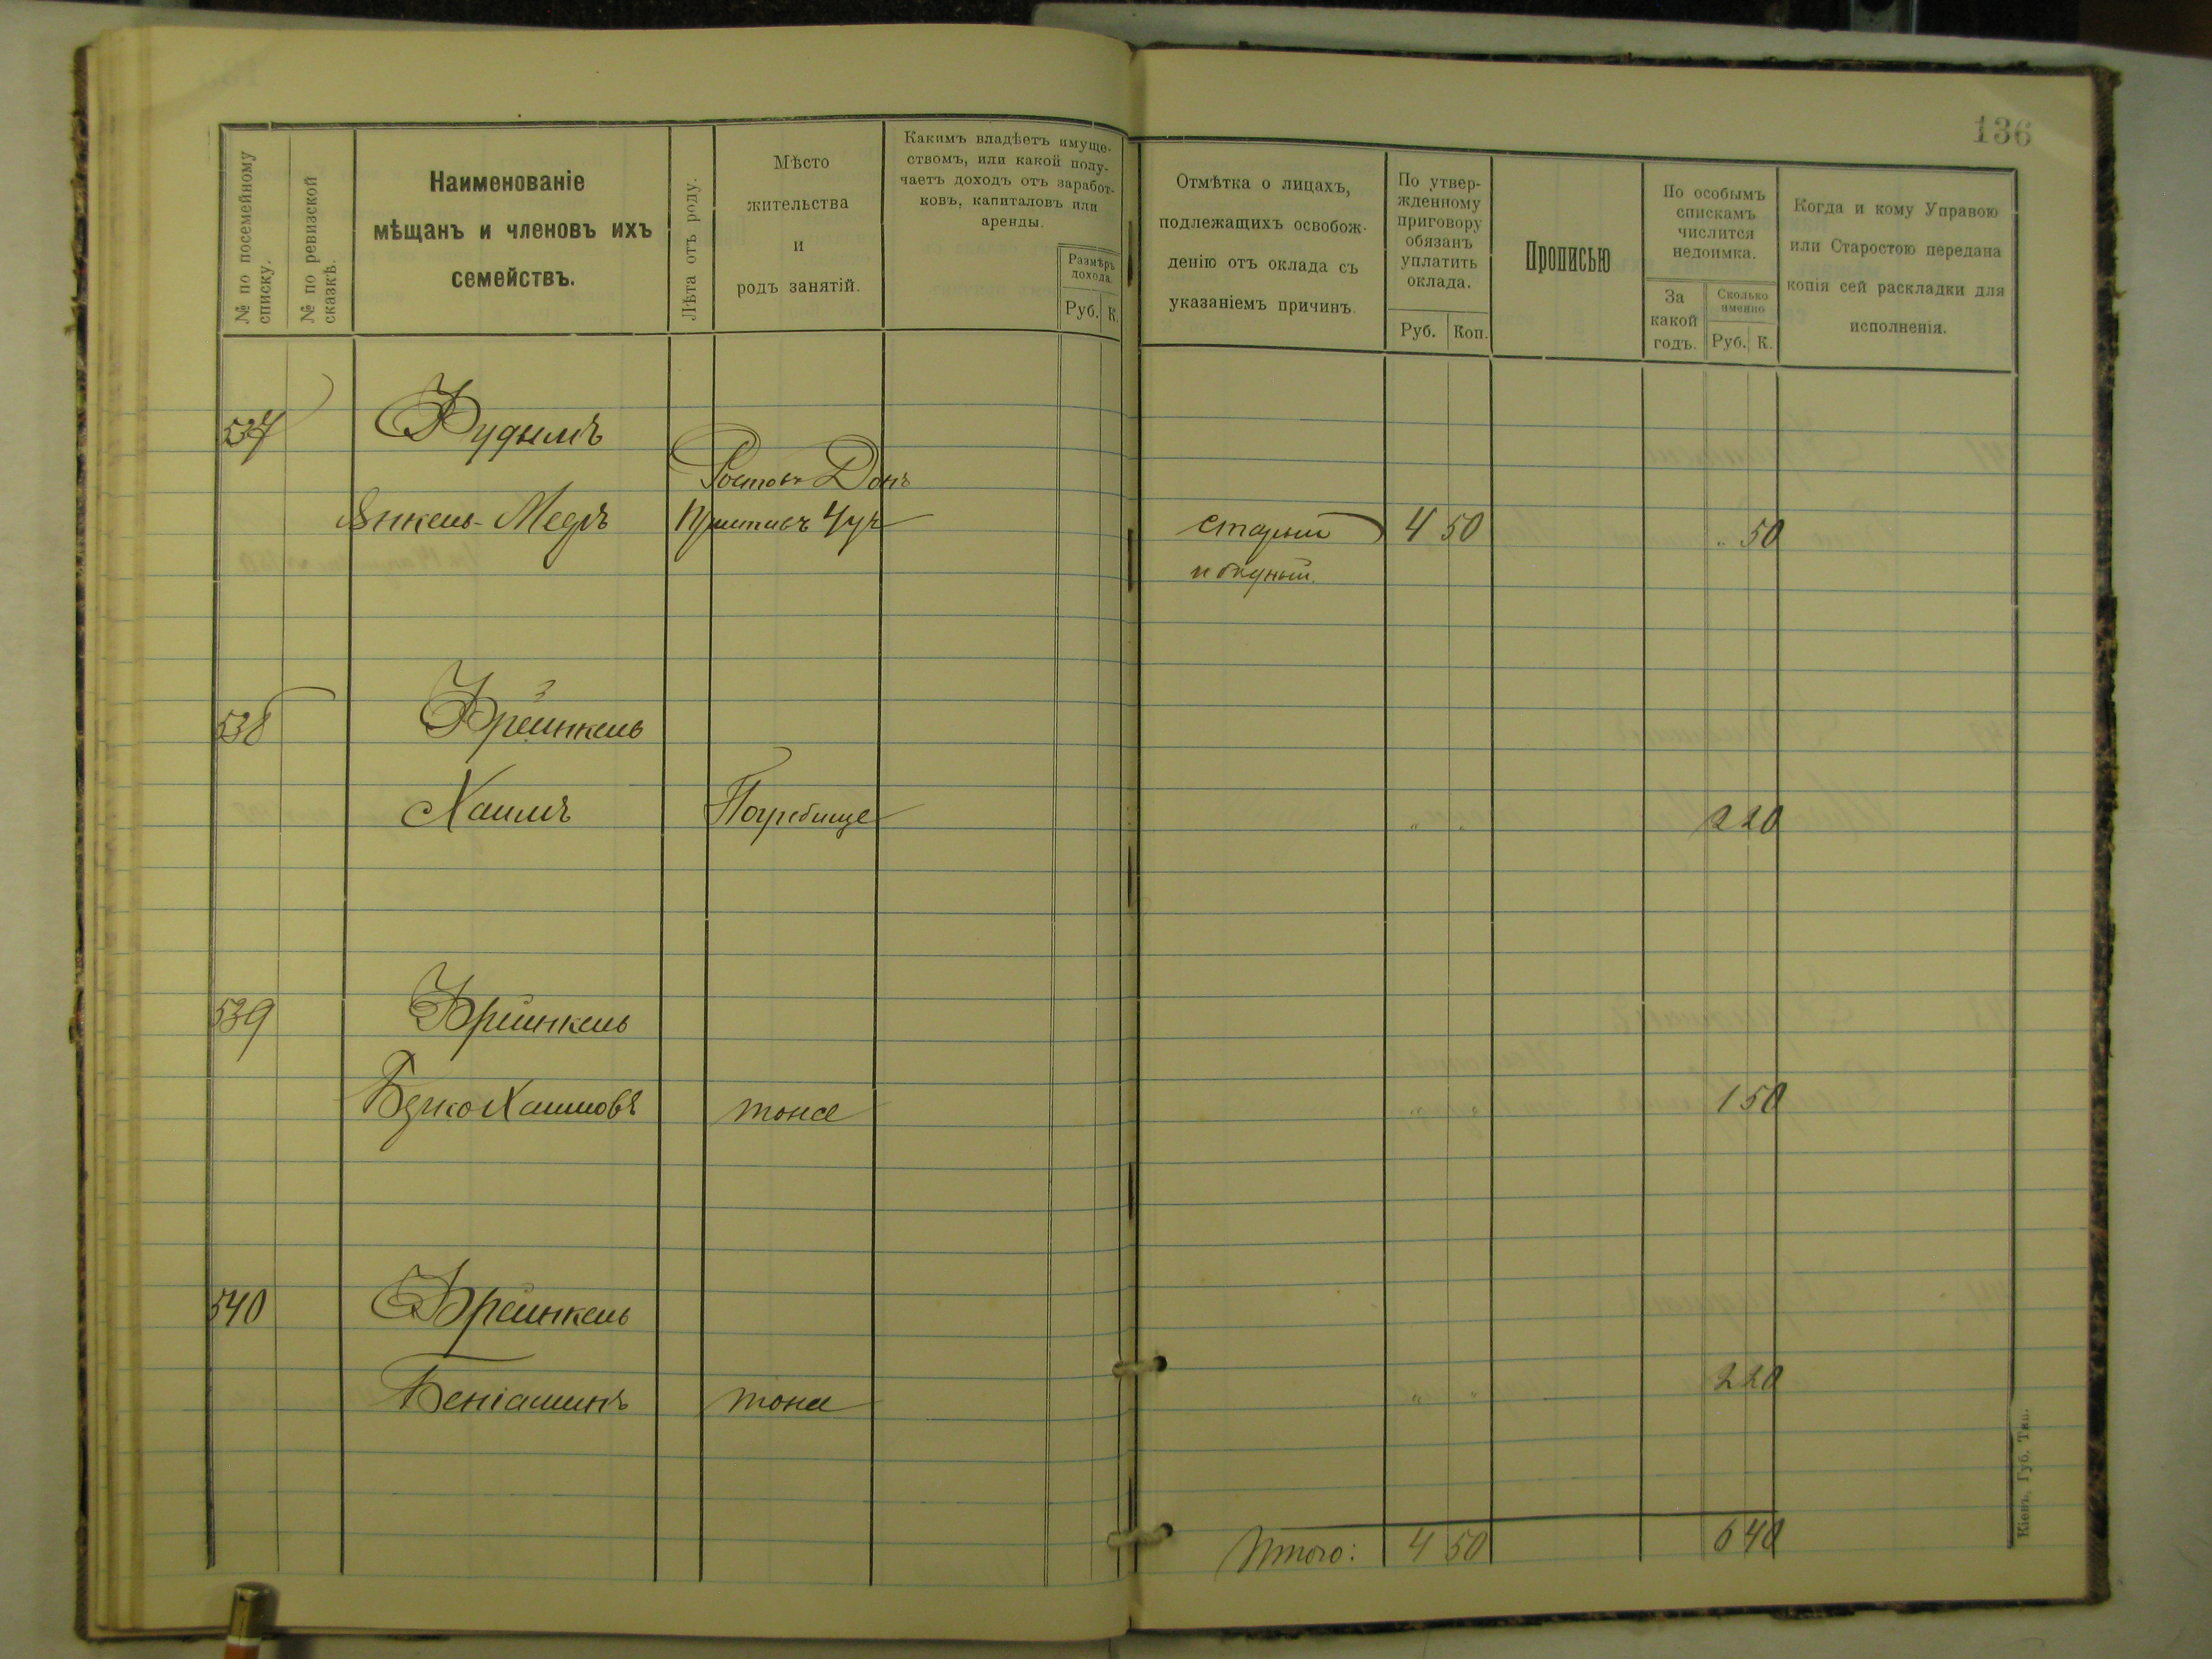 136
№ по посемейному
списку.
№ по ревизской
сказкѣ.
Наименованіе
мѣщанъ и членовъ ихъ
семействъ.
Лѣта отъ роду.
Мѣсто
жительства
и
родъ занятій.
Какимъ владѣетъ имуще-
ствомъ, или какой полу-
чаетъ доходъ отъ заработ-
ковъ, капиталовъ или
аренды.
Размѣръ
дохода.
Руб. К.
Отмѣтка о лицахъ,
подлежащихъ освобож-
денію отъ оклада съ
указаніемъ причинъ.
По утвер-
жденному
приговору
обязанъ
уплатить
оклада.
Руб. Коп.
Прописью
По особымъ
спискамъ
числится
недоимка.
За
какой
годъ.
Сколько
именно
Руб. К.
Когда и кому Управою
или Старостою передана
копія сей раскладки для
исполненія.
537 Фудымъ
Ростовъ Донъ
Янкель-Мееръ старый 4 50 " 50
и бѣдный.
538 Фрейнкель
Хаимъ Погребище " " 2 20
539 Фрейнкель
Берко Хаимовъ тоже " " 1 50
540 Фрейнкель
Беніаминъ тоже " " 2 20
Итого: 4 50 6 40
Кіевъ, Губ. Тип.